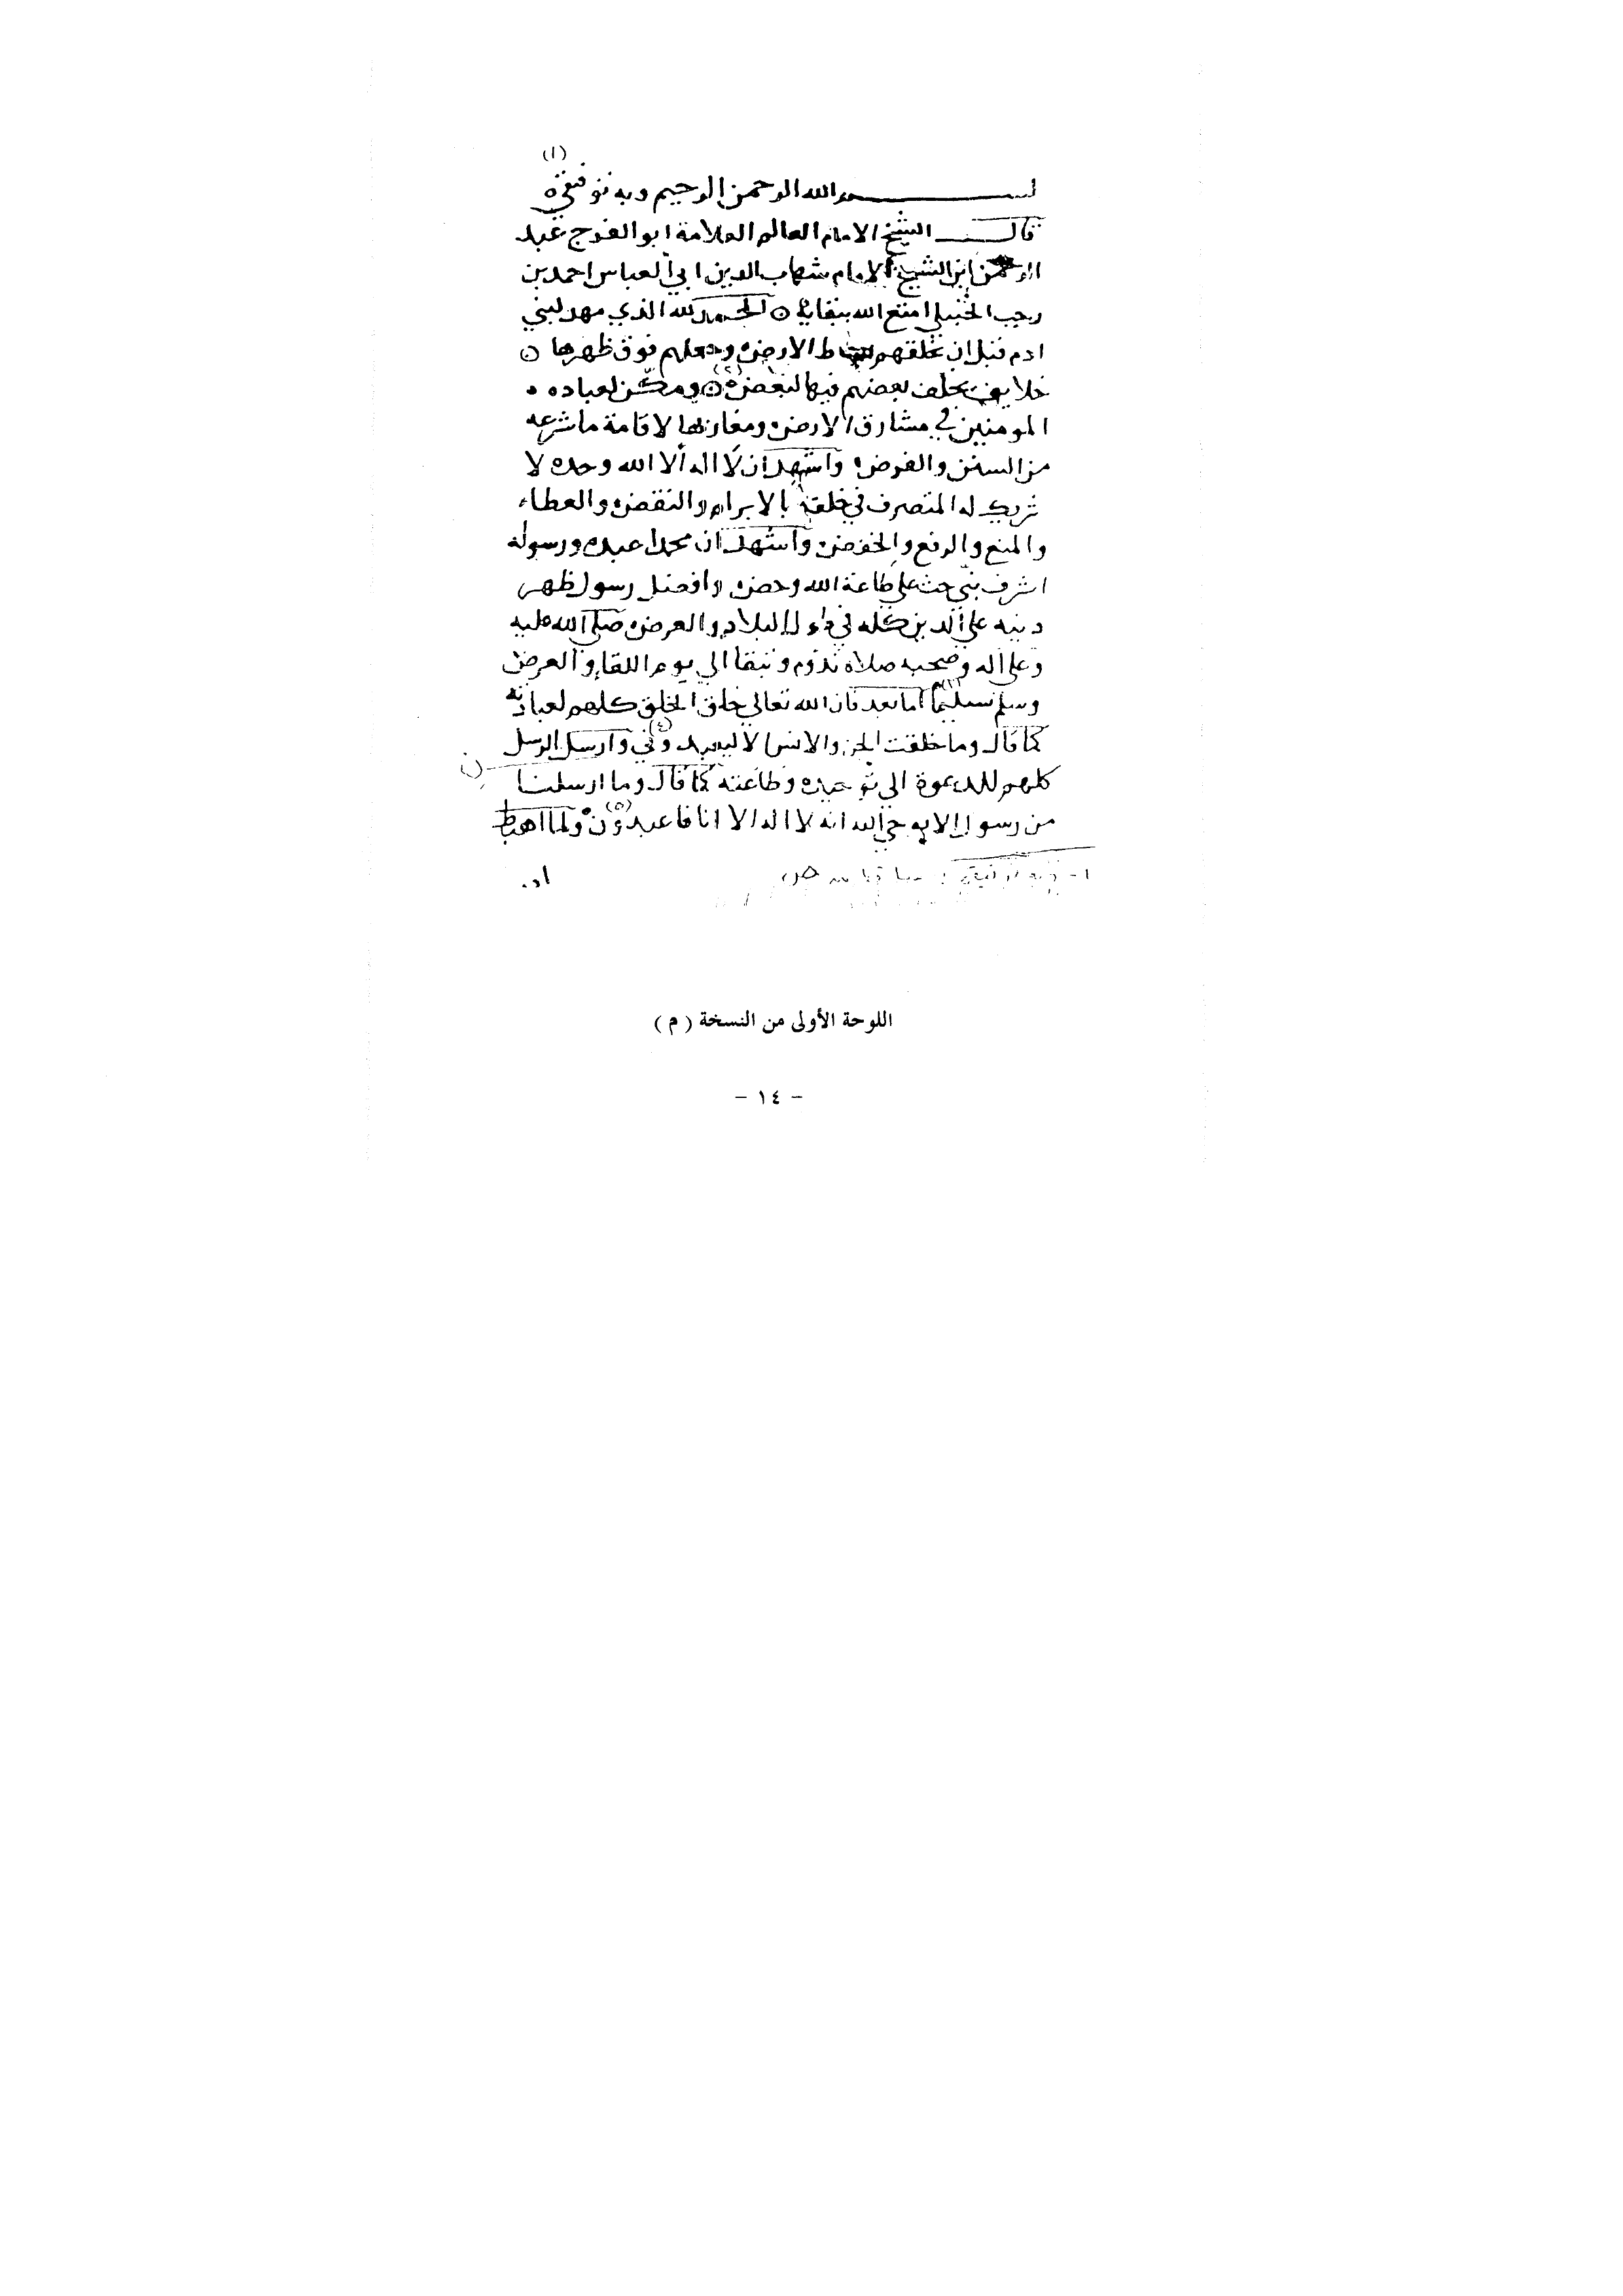 (١)
بسم الله الرحمن الرحيم وبه توفيقي
قال الشيخ الامام العالم العلامة ابو الفرج عبد
الرحمن ابن الشيخ الامام شهاب الدين ابي العباس احمد بن
رجب الحنبلي امتع الله ببقايه الحمد لله الذي مهد لبني
ادم قبل ان يخلقهم بساط الارض وجعلهم فوق ظهرها
خلايف يخلف بعضهم فيها لبعض (٢) ومكن لعباده
المومنين في مشارق الارض ومغاربها لاقامة ما شرعه
من السنن والفرض واشهد ان لا اله الا الله وحده لا
شريك له المتصرف في خلقه بالابرام والنقض والعطاء
والمنع والرفع والخفض واشهد ان محمدا عبده ورسوله
اشرف نبي حث على طاعة الله وحض وافضل رسول ظهر
دينه على الدين كله في البلاد والعرض صلى الله عليه
وعلى اله وصحبه صلاه تدوم وتبقا الى يوم اللقاء والعرض
وسلم تسليما اما بعد فان الله تعالى خلق الخلق كلهم لعبادته
كما قال وما خلقت الجن والانس الا ليعبدوني (٤) وارسل الرسل
كلهم للدعوة الى توحيده وطاعته كما قال وما ارسلنا
من رسول الا يوحي اليه انه لا اله الا انا فاعبدون (٥) ولما اهبط
ادم
اللوحة الأولى من النسخة ( م )
- ١٤ -